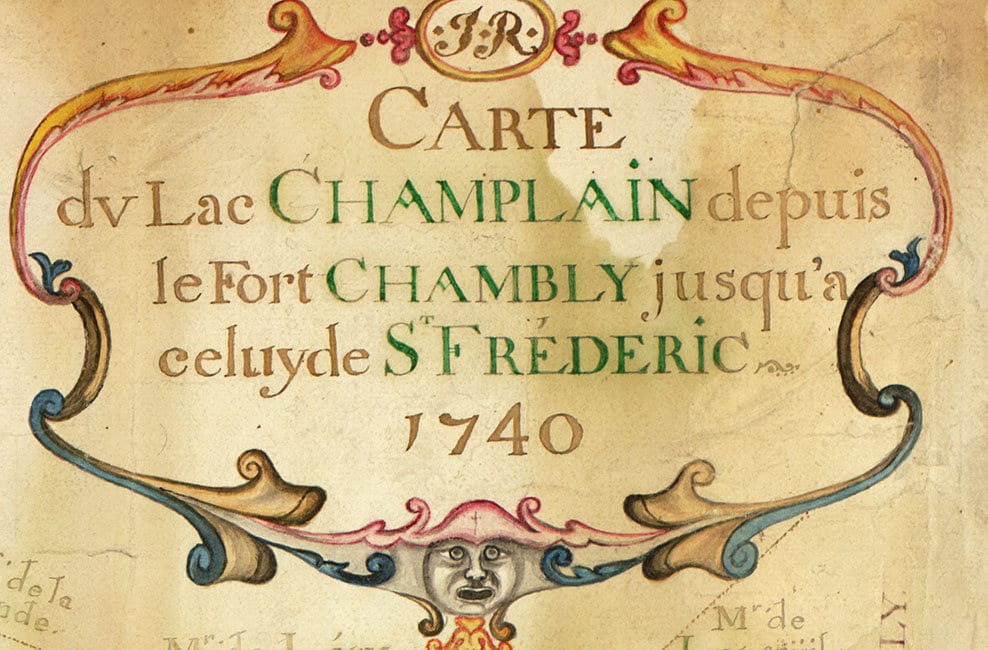 ·J·R·
CARTE
dv Lac CHAMPLAIN depuis
le Fort CHAMBLY jusqu'a
celuy de ST FRÉDERIC
1740
de la
Mr. de
Mr. de
LY